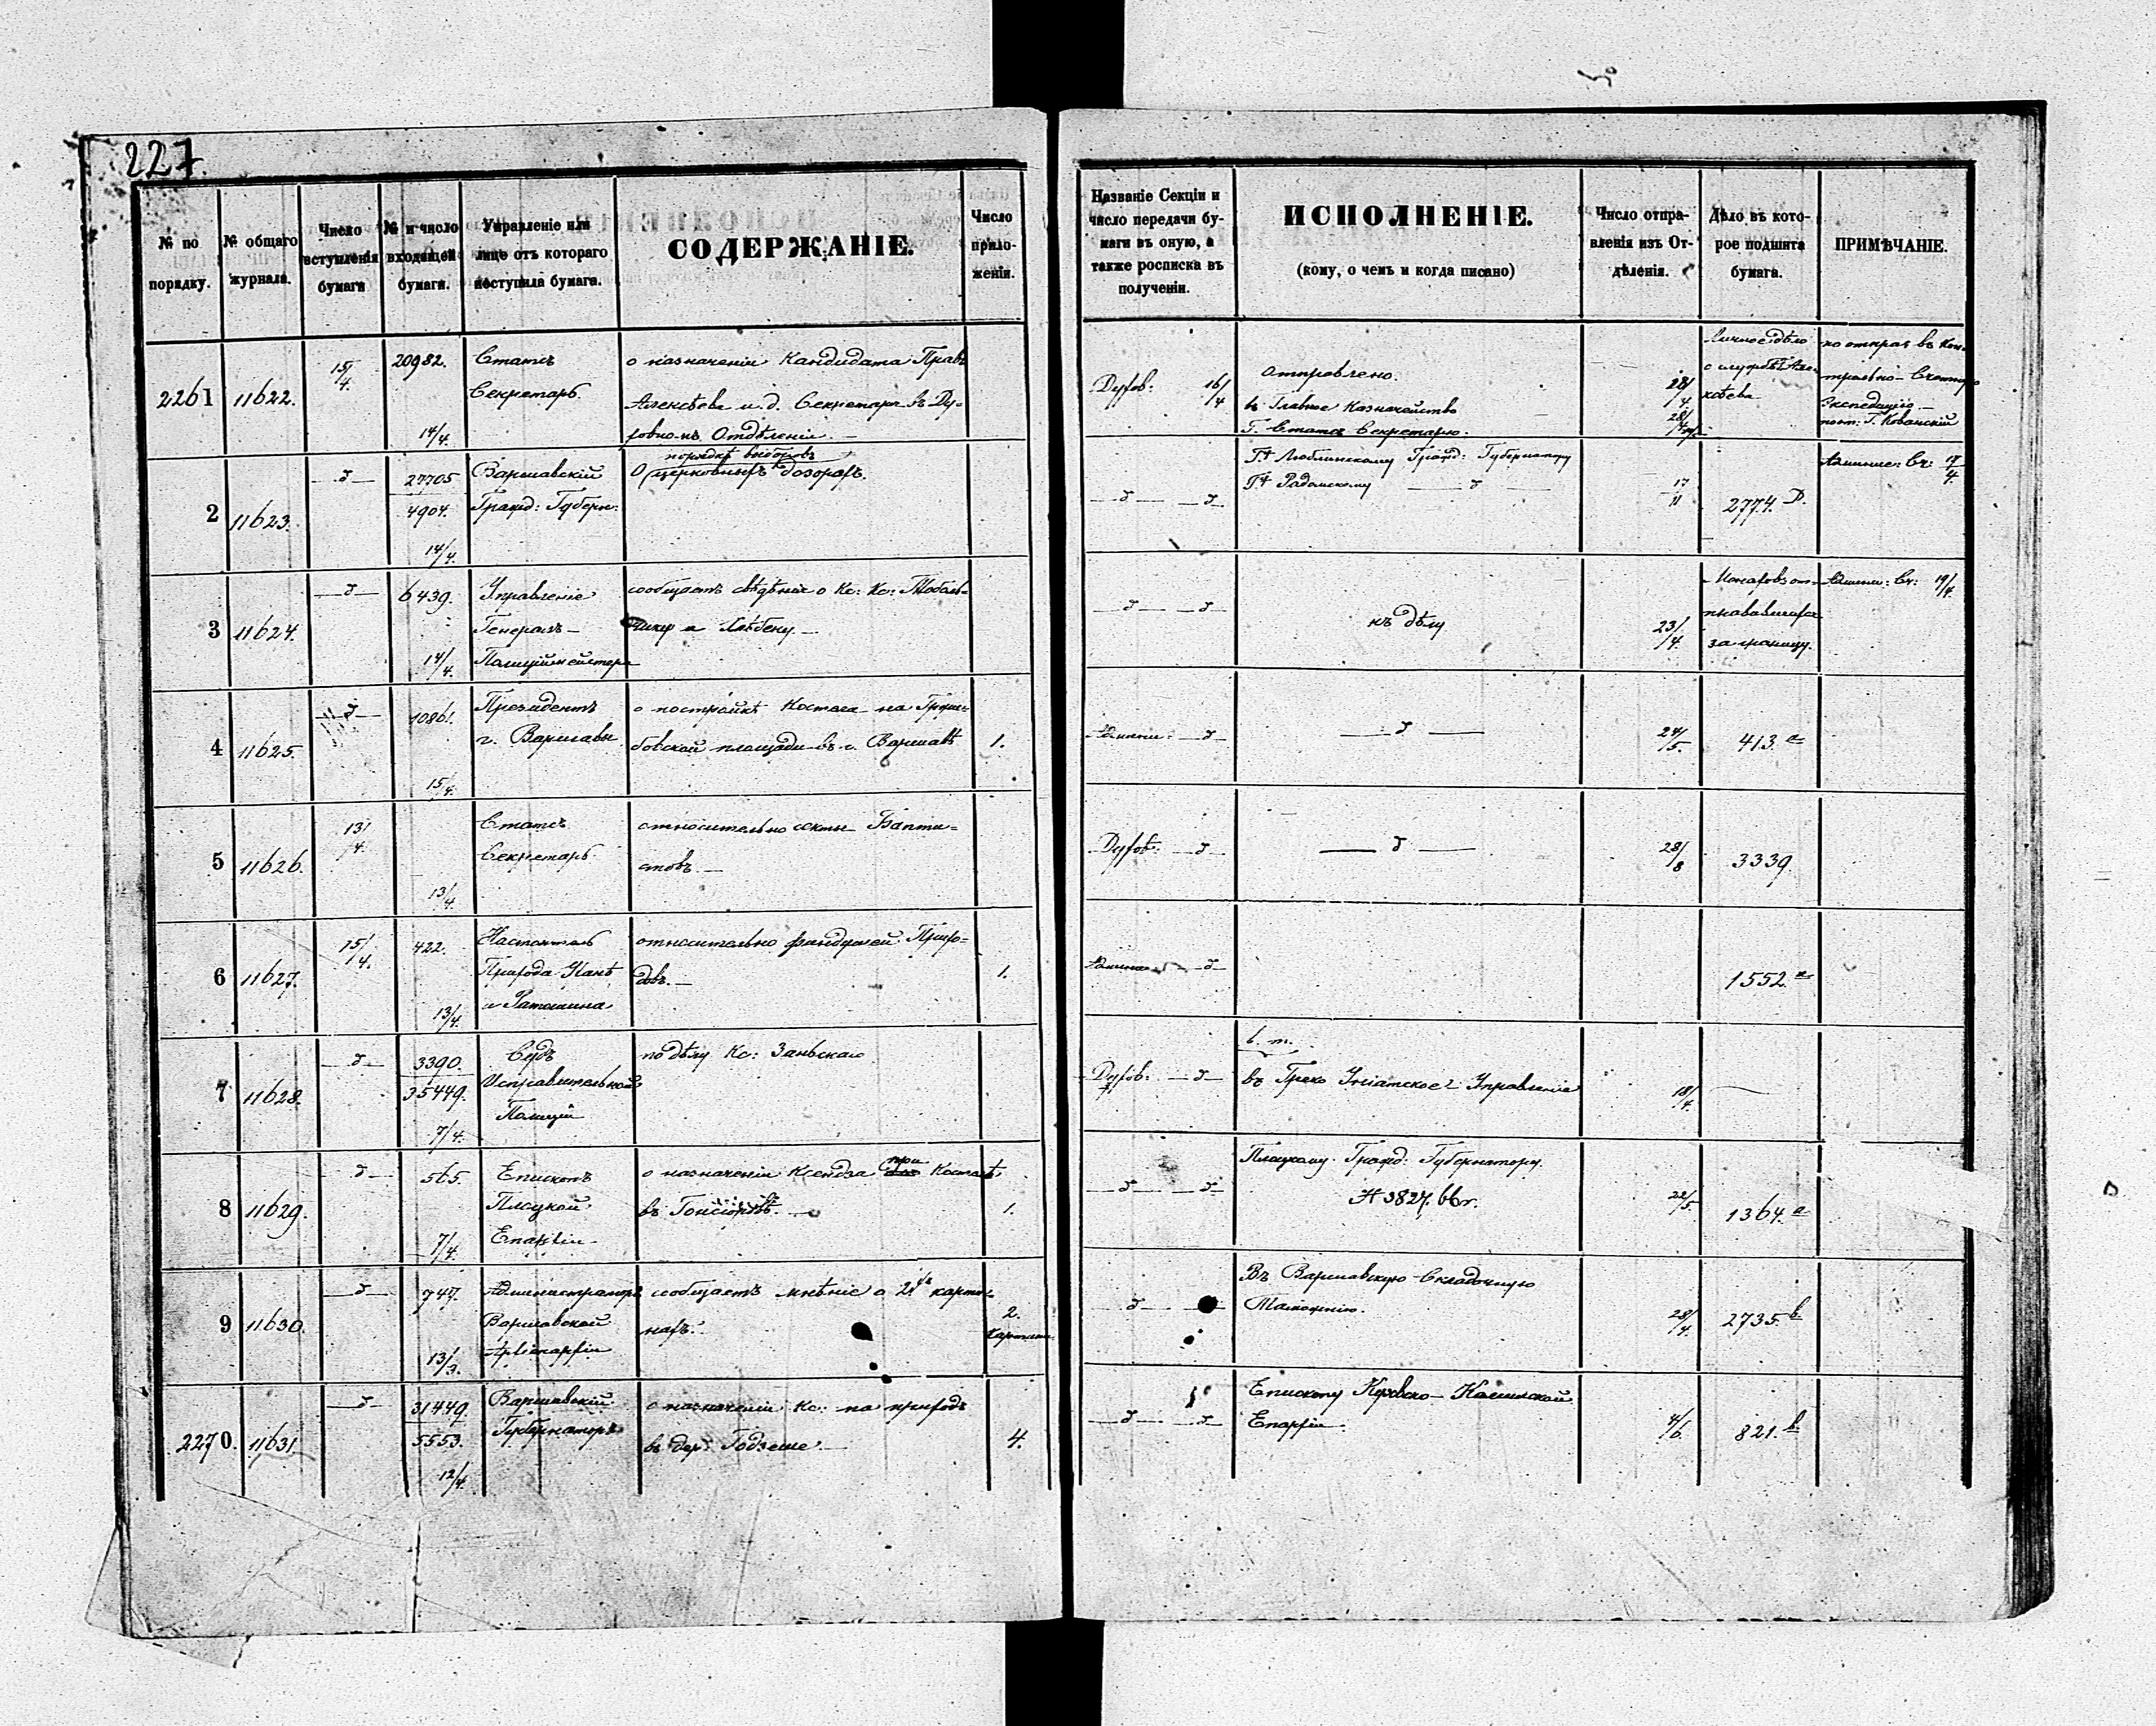 227.
№ по
порядку.
№ общаго
журнала.
Число
вступленія
бумаги
№ и число
входящей
бумаги.
Управленіе или
лице отъ котораго
поступила бумага.
СОДЕРЖАНІЕ.
Число
прило-
женій.
Названіе Секціи и
число передачи бу-
маги въ оную, а
также росписка въ
полученіи.
ИСПОЛНЕНІЕ.
(кому, о чемъ и когда писано)
Число отпра-
вленія изъ От-
дѣленія.
Дѣло въ кото-
рое подшита
бумага.
ПРИМѢЧАНІЕ.
2261
11622.
15/4.
20982.
14/4.
Статсъ
Секретарь
о назначеніи Кандидата Правъ
Алексѣева и. д. Секретаря въ Ду-
ховномъ Отдѣленіи. —
Духов: 16/4
Отправлено.
въ Главное Казначейство
Г. Статсъ Секретарю.
28/4
28/4
Личное дѣло
о службѣ Але-
ксѣева
2
11623.
— д —
27705
4904.
14/4.
Варшавскій
Гражд: Губерн:
порядкѣ выборовъ
О церковныхъ дозорахъ.
— д — — д —
Г. Люблинскому Гражд: Губернатору
Г. Радомскому — д —
17
2774. D.
17/4
3
11624.
— д —
6439.
14/4.
Управленіе
Генералъ-
Полицiймейстера
сообщаетъ свѣдѣніе о Кс: Кс:
— д — — д —
къ дѣлу
23/4.
за границу.
19/4.
4
11625.
— д —
10861.
15/4.
Президентъ
г. Варшавы
о постройкѣ Костела на Гржи-
бовской площади въ г. Варшавѣ
1.
— д —
— д —
24/5.
413. a
5
11626.
13/4.
13/4.
Статсъ
Секретарь
относительно секты Бапти-
стовъ. —
Духов: — д —
— д —
28/8
3339.
6
11627.
15/4.
422.
13/4.
Настоятель
Прихода
относительно фундушей Прихо-
довъ. —
1.
— д —
1552. a
7
11628.
— д —
3390.
35449.
7/4.
Судъ
Исправительной
Полиціи
по дѣлу Кс: Заньскаго
Духов: — д —
в. т.
въ Греко Уніатское Управленіе
18/4.
—
8
11629.
— д —
565.
7/4.
Епископъ
Плоцкой
Епархіи
при
о назначеніи Ксендза Костелѣ
въ
1.
— д — — д —
Плоцкому Гражд: Губернатору.
№ 3827.
22/5.
1364. a
9
11630.
— д —
747.
13/3.
Администраторъ
Варшавской
Архіепархіи
сообщаетъ мнѣніе о 2хъ карти-
нахъ.
2.
картины
— д —
Въ Варшавскую Складочную
Таможню.
28/4.
2735. b
2270.
11631.
— д —
31449.
5553.
12/4.
Варшавскій
Губернаторъ
о назначеніи Кс: на приходъ
въ дер: Годзеше. —
4.
— д — — д —
Епископу Куявско-Калишской
Епархіи.
4/6.
821. b